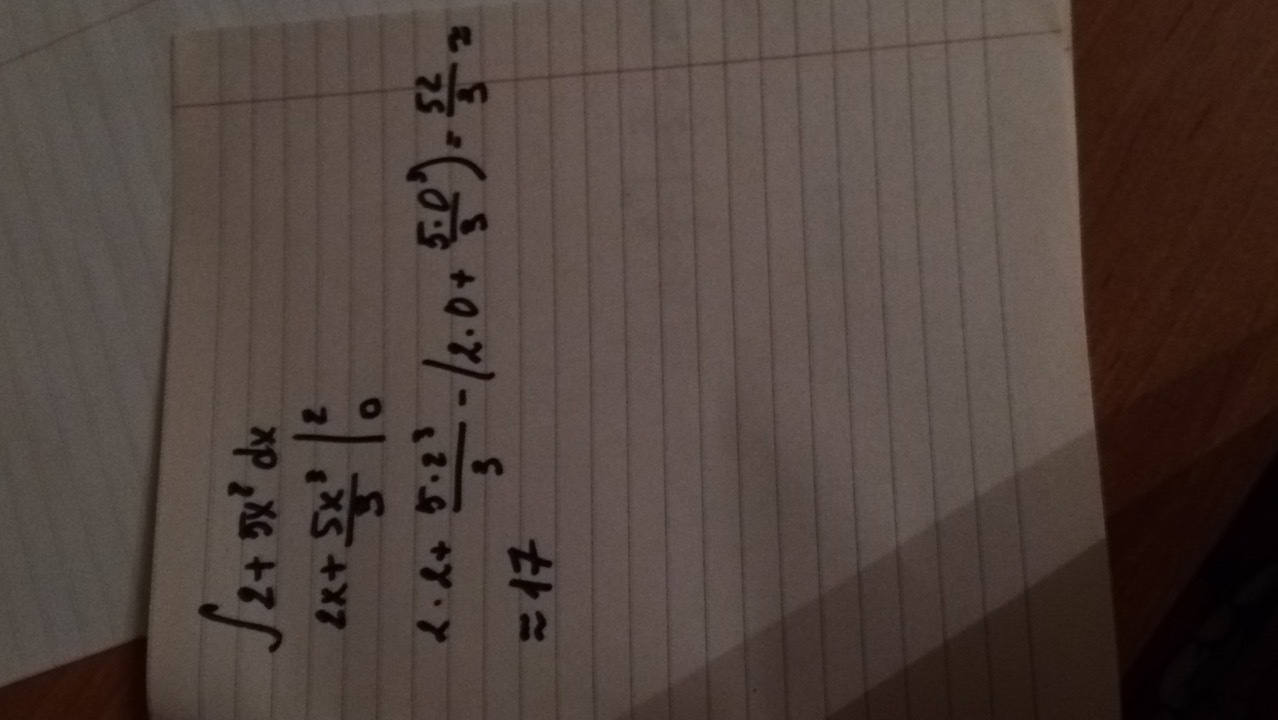 ∫ 2 + 5x² dx
2x + 5x³/3 |₀²
2 · 2 + 5·2³/3 - (2·0 + 5·0³/3) = 52/3 ≈
≈ 17